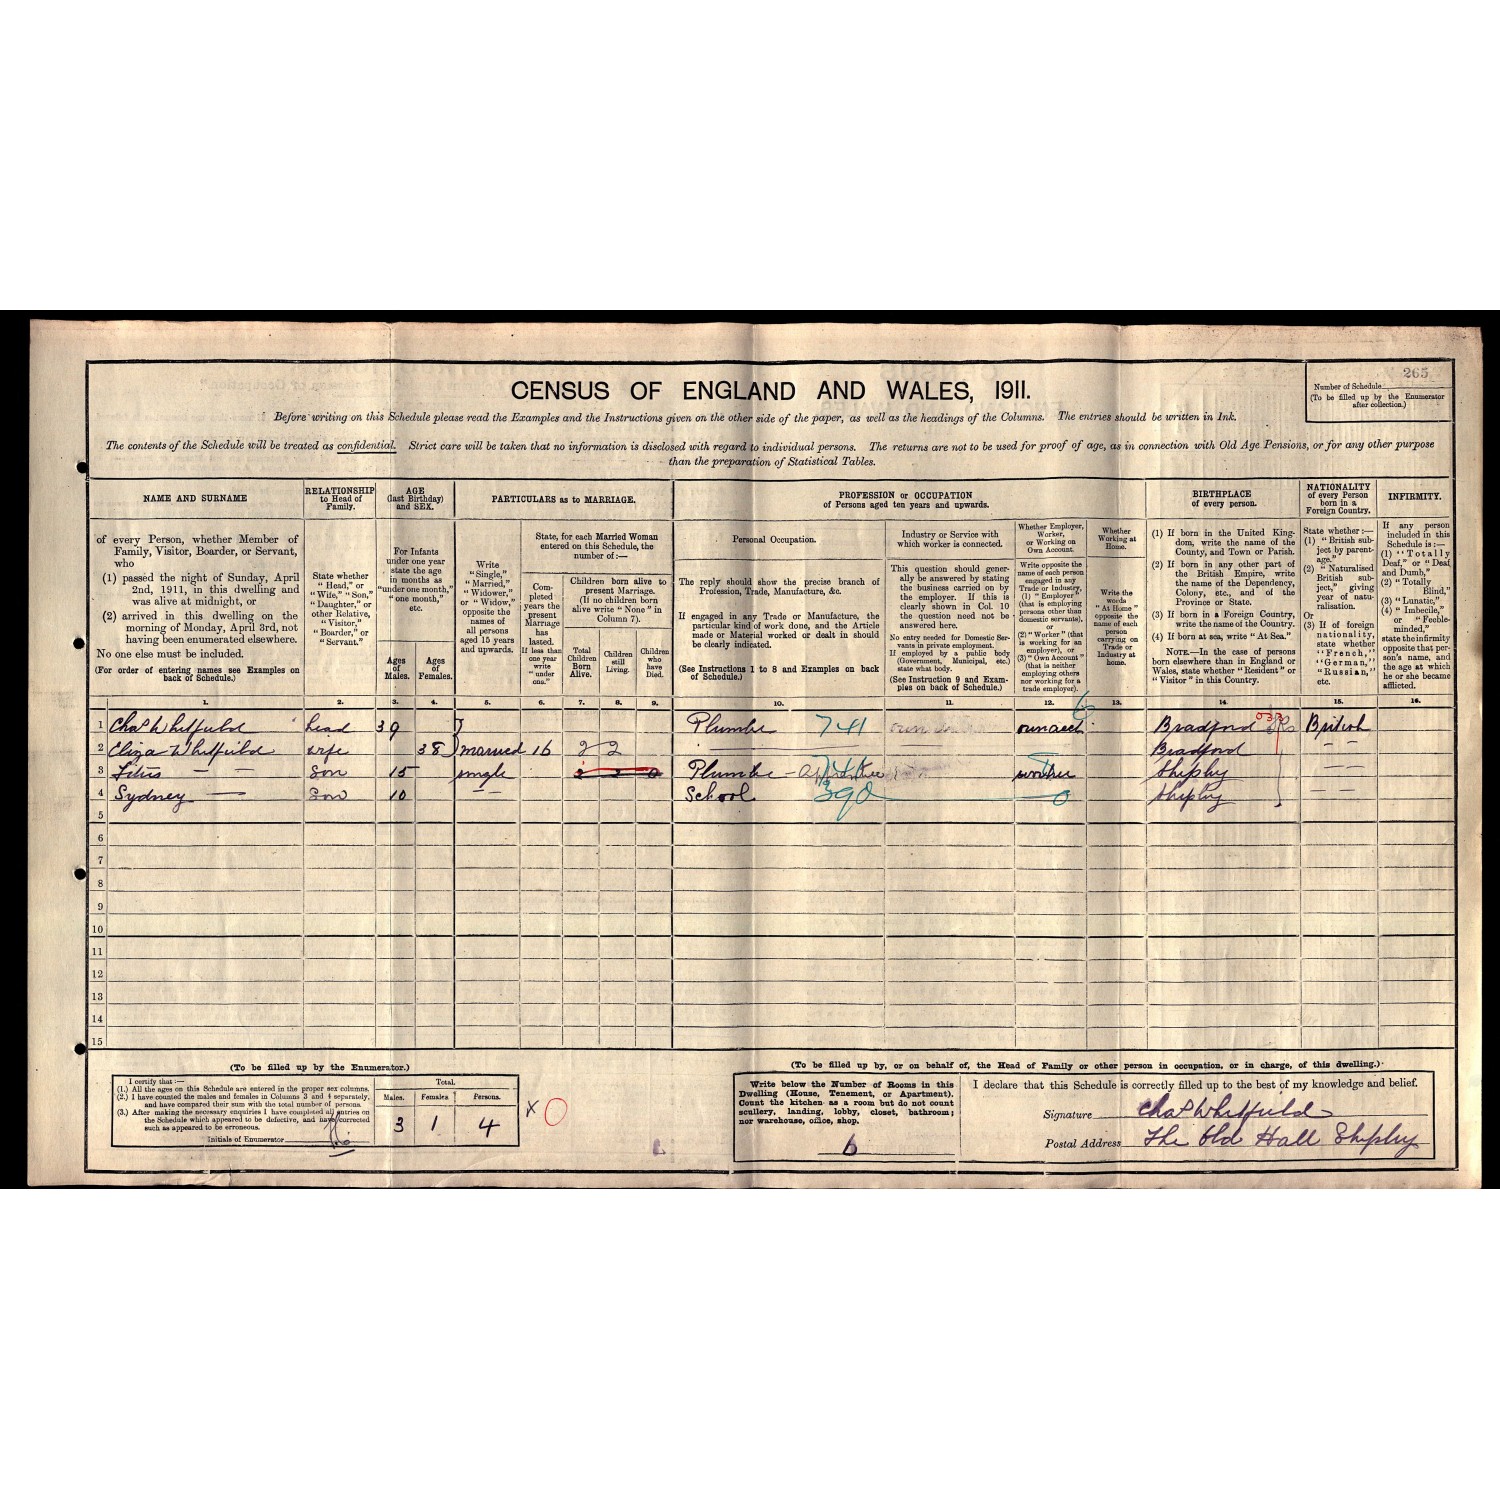 CENSUS OF ENGLAND AND WALES, 1911.
265
Number of Schedule
(To be filled up by the Enumerator
after collection.)
Before writing on this Schedule please read the Examples and the Instructions given on the other side of the paper, as well as the headings of the Columns. The entries should be written in Ink.
The contents of the Schedule will be treated as confidential. Strict care will be taken that no information is disclosed with regard to individual persons. The returns are not to be used for proof of age, as in connection with Old Age Pensions, or for any other purpose
than the preparation of Statistical Tables.
NAME AND SURNAME
of every Person, whether Member of
Family, Visitor, Boarder, or Servant,
who
(1) passed the night of Sunday, April
2nd, 1911, in this dwelling and
was alive at midnight, or
(2) arrived in this dwelling on the
morning of Monday, April 3rd, not
having been enumerated elsewhere.
No one else must be included.
(For order of entering names see Examples on
back of Schedule.)
RELATIONSHIP
to Head of
Family.
State whether
"Head," or
"Wife," "Son,"
"Daughter," or
other Relative,
"Visitor,"
"Boarder," or
"Servant."
AGE
(last Birthday)
and SEX.
For Infants
under one year
state the age
in months as
"under one month,"
"one month,"
etc.
Ages
of
Males.
Ages
of
Females.
PARTICULARS as to MARRIAGE.
Write
"Single,"
"Married,"
"Widower,"
or "Widow,"
opposite the
names of
all persons
aged 15 years
and upwards.
State, for each Married Woman
entered on this Schedule, the
number of:—
Com-
pleted
years the
present
Marriage
has
lasted.
If less than
one year
write
"under
one."
Children born alive to
present Marriage.
(If no children born
alive write "None" in
Column 7).
Total
Children
Born
Alive.
Children
still
Living.
Children
who
have
Died.
PROFESSION or OCCUPATION
of Persons aged ten years and upwards.
Personal Occupation.
The reply should show the precise branch of
Profession, Trade, Manufacture, &c.
If engaged in any Trade or Manufacture, the
particular kind of work done, and the Article
made or Material worked or dealt in should
be clearly indicated.
(See Instructions 1 to 8 and Examples on back
of Schedule.)
Industry or Service with
which worker is connected.
This question should gener-
ally be answered by stating
the business carried on by
the employer. If this is
clearly shown in Col. 10
the question need not be
answered here.
No entry needed for Domestic Ser-
vants in private employment.
If employed by a public body
(Government, Municipal, etc.)
state what body.
(See Instruction 9 and Exam-
ples on back of Schedule.)
Whether Employer,
Worker,
or Working on
Own Account.
Write opposite the
name of each person
engaged in any
Trade or Industry,
(1) "Employer"
(that is employing
persons other than
domestic servants),
or
(2) "Worker" (that
is working for an
employer), or
(3) "Own Account"
(that is neither
employing others
nor working for a
trade employer).
Whether
Working at
Home.
Write the
words
"At Home"
opposite the
name of each
person
carrying on
Trade or
Industry at
home.
BIRTHPLACE
of every person.
(1) If born in the United King-
dom, write the name of the
County, and Town or Parish.
(2) If born in any other part of
the British Empire, write
the name of the Dependency,
Colony, etc., and of the
Province or State.
(3) If born in a Foreign Country,
write the name of the Country.
(4) If born at sea, write "At Sea."
NOTE.—In the case of persons
born elsewhere than in England or
Wales, state whether "Resident" or
"Visitor" in this Country.
NATIONALITY
of every Person
born in a
Foreign Country.
State whether:—
(1) "British sub-
ject by parent-
age."
(2) "Naturalised
British sub-
ject," giving
year of natu-
ralisation.
Or
(3) If of foreign
nationality,
state whether
"French,"
"German,"
"Russian,"
etc.
INFIRMITY.
If any person
included in this
Schedule is:—
(1) "Totally
Deaf," or "Deaf
and Dumb,"
(2) "Totally
Blind,"
(3) "Lunatic,"
(4) "Imbecile,"
or "Feeble-
minded,"
state the infirmity
opposite that per-
son's name, and
the age at which
he or she became
afflicted.
1. 2. 3. 4. 5. 6. 7. 8. 9. 10. 11. 12. 13. 14. 15. 16.
1 Chas Whitfield head 39 Plumber 741 own account 6 Bradford 033 British
2 Eliza Whitfield wife 38 married 16 2 2 Bradford — —
3 Titus — — Son 15 single 2 2 0 Plumber – apprentice worker Shipley
4 Sydney — Son 10 — — School 390 0 Shipley — —
5
6
7
8
9
10
11
12
13
14
15
(To be filled up by the Enumerator.)
I certify that:—
(1.) All the ages on this Schedule are entered in the proper sex columns.
(2.) I have counted the males and females in Columns 3 and 4 separately,
and have compared their sum with the total number of persons.
(3.) After making the necessary enquiries I have completed all entries on
the Schedule which appeared to be defective, and have corrected
such as appeared to be erroneous.
Initials of Enumerator
Total.
Males. Females. Persons.
3 1 4
x 0
(To be filled up by, or on behalf of, the Head of Family or other person in occupation, or in charge, of this dwelling.)
Write below the Number of Rooms in this
Dwelling (House, Tenement, or Apartment).
Count the kitchen as a room but do not count
scullery, landing, lobby, closet, bathroom;
nor warehouse, office, shop.
6
I declare that this Schedule is correctly filled up to the best of my knowledge and belief.
Signature Chas Whitfield
Postal Address The Old Hall Shipley